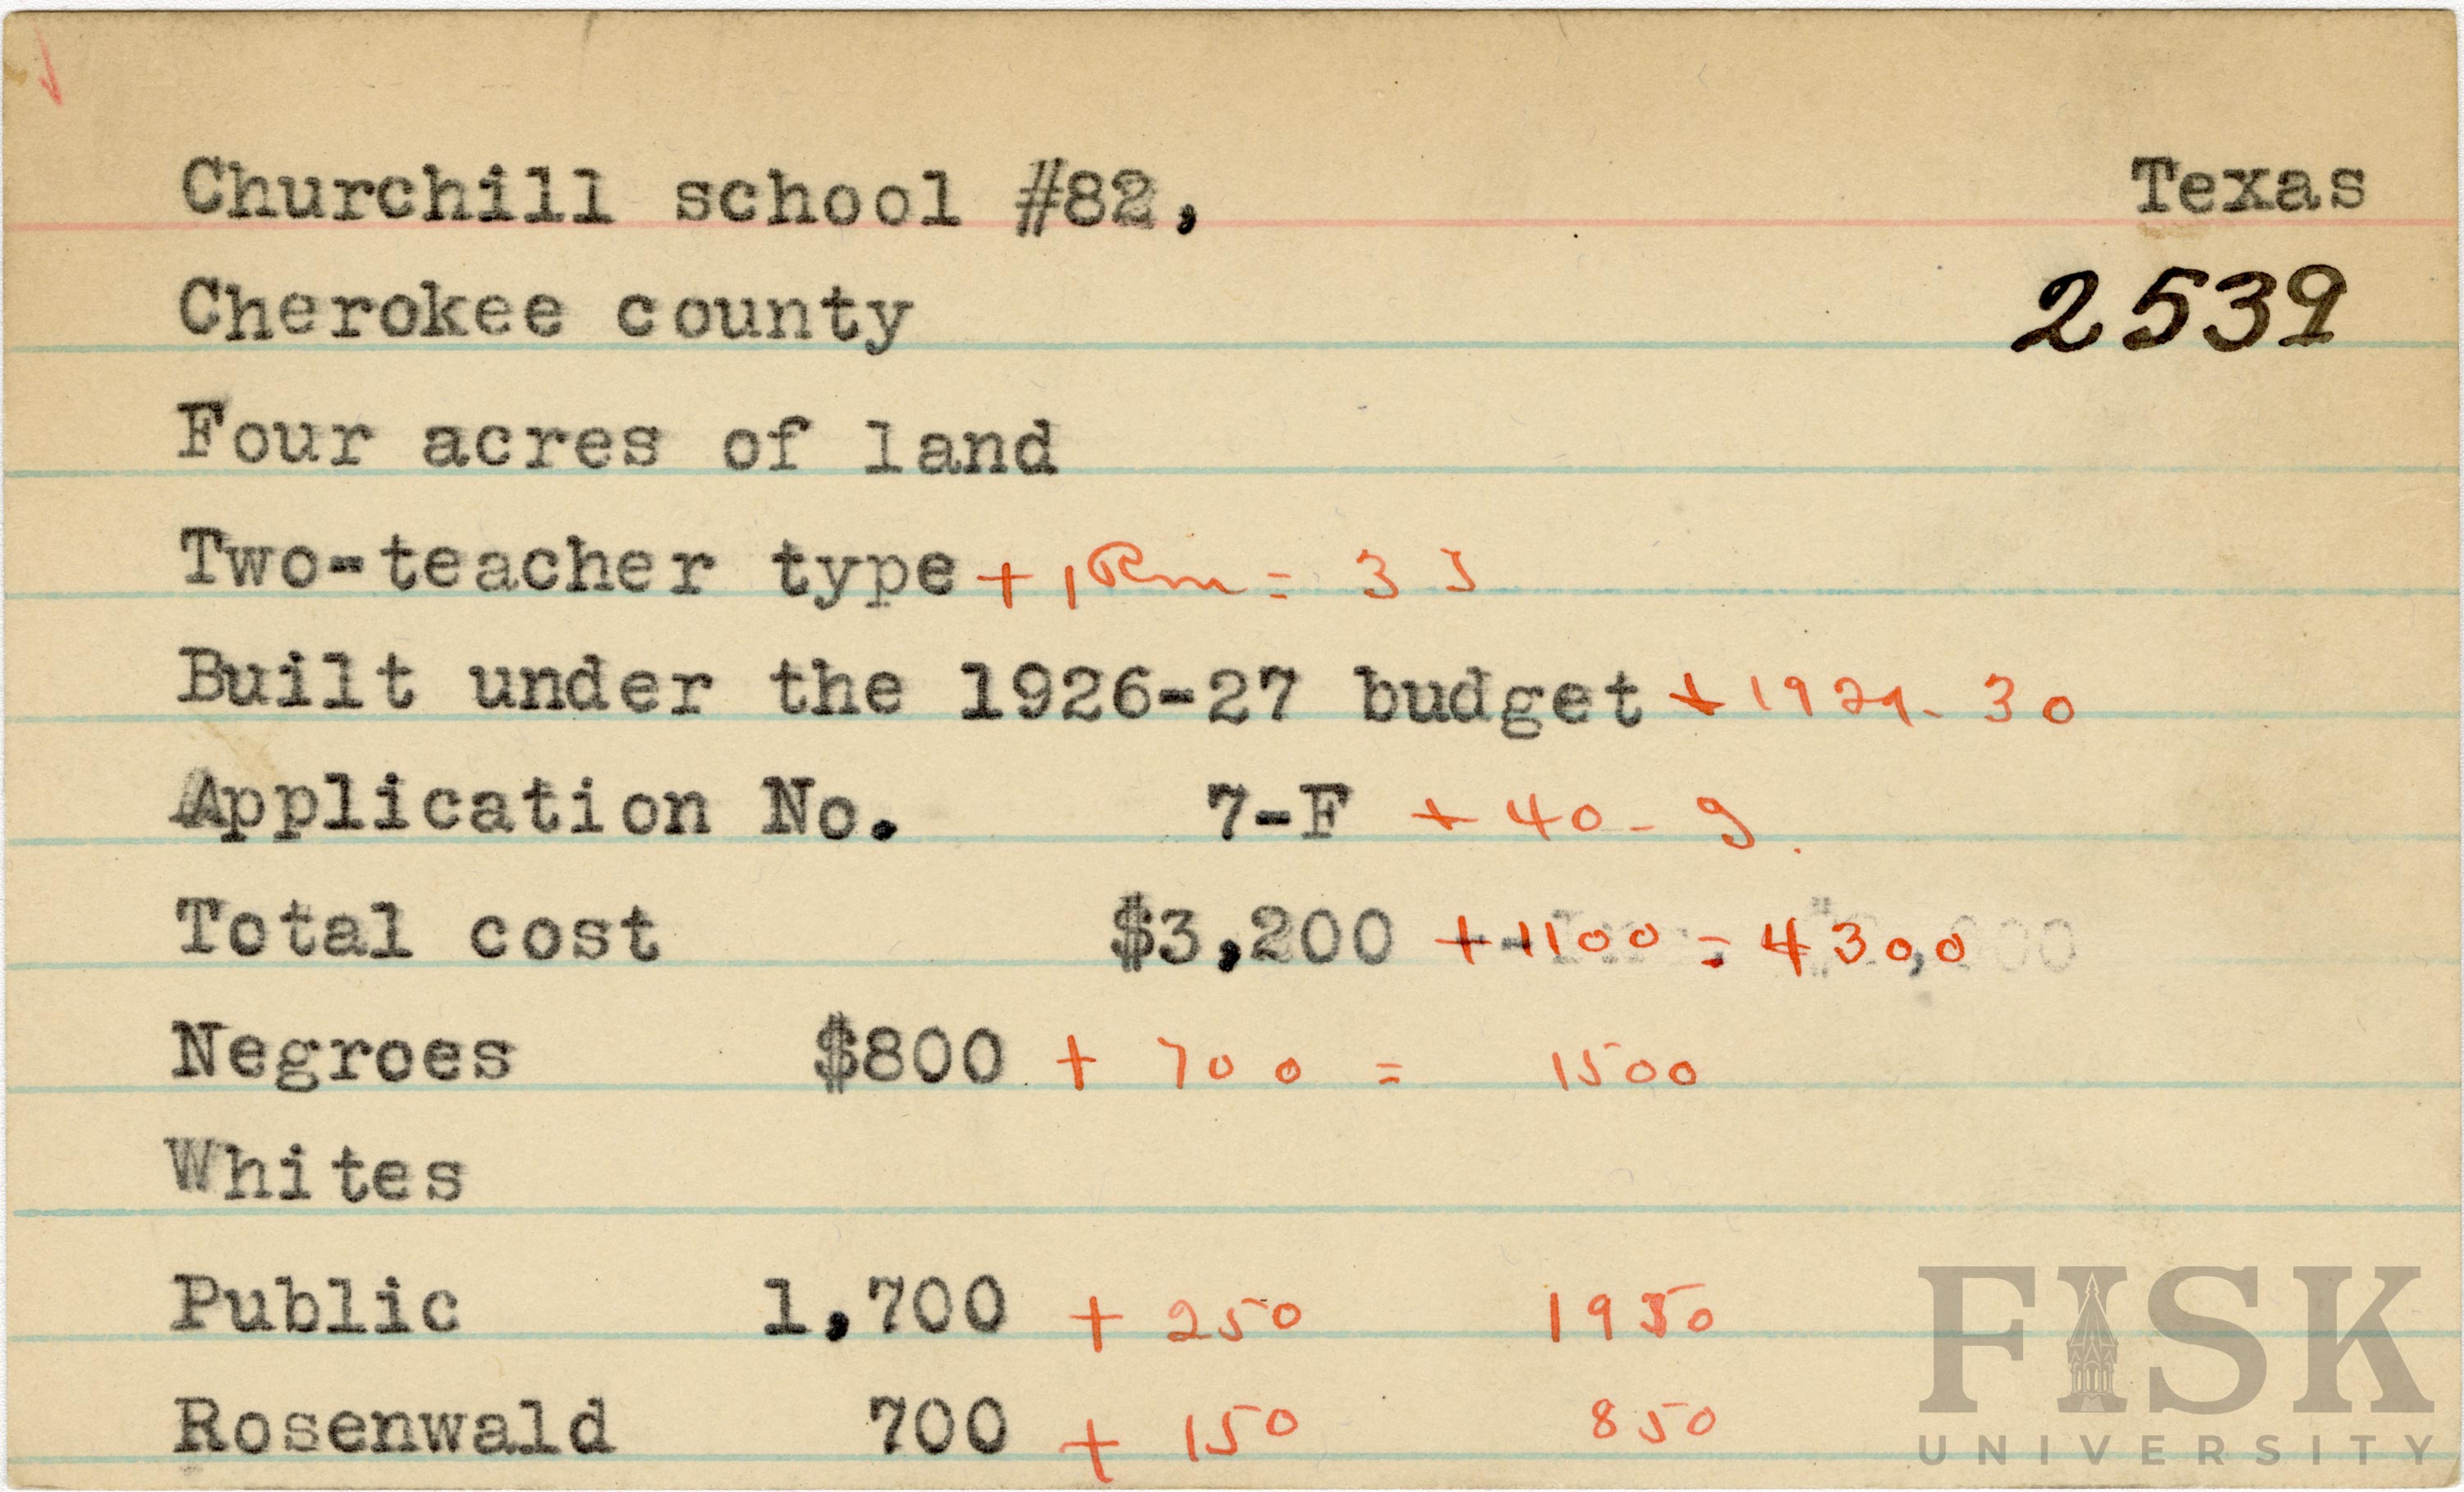 Churchill school #82, Texas
Cherokee county 2539
Four acres of land
Two-teacher type + 1 Rm = 3 3
Built under the 1926-27 budget + 1929-30
Application No. 7-F + 40-g.
Total cost $3,200 + 1100 = 4300
Negroes $800 + 700 = 1500
Whites
Public 1,700 + 250 1950
Rosenwald 700 + 150 850
FISK
UNIVERSITY